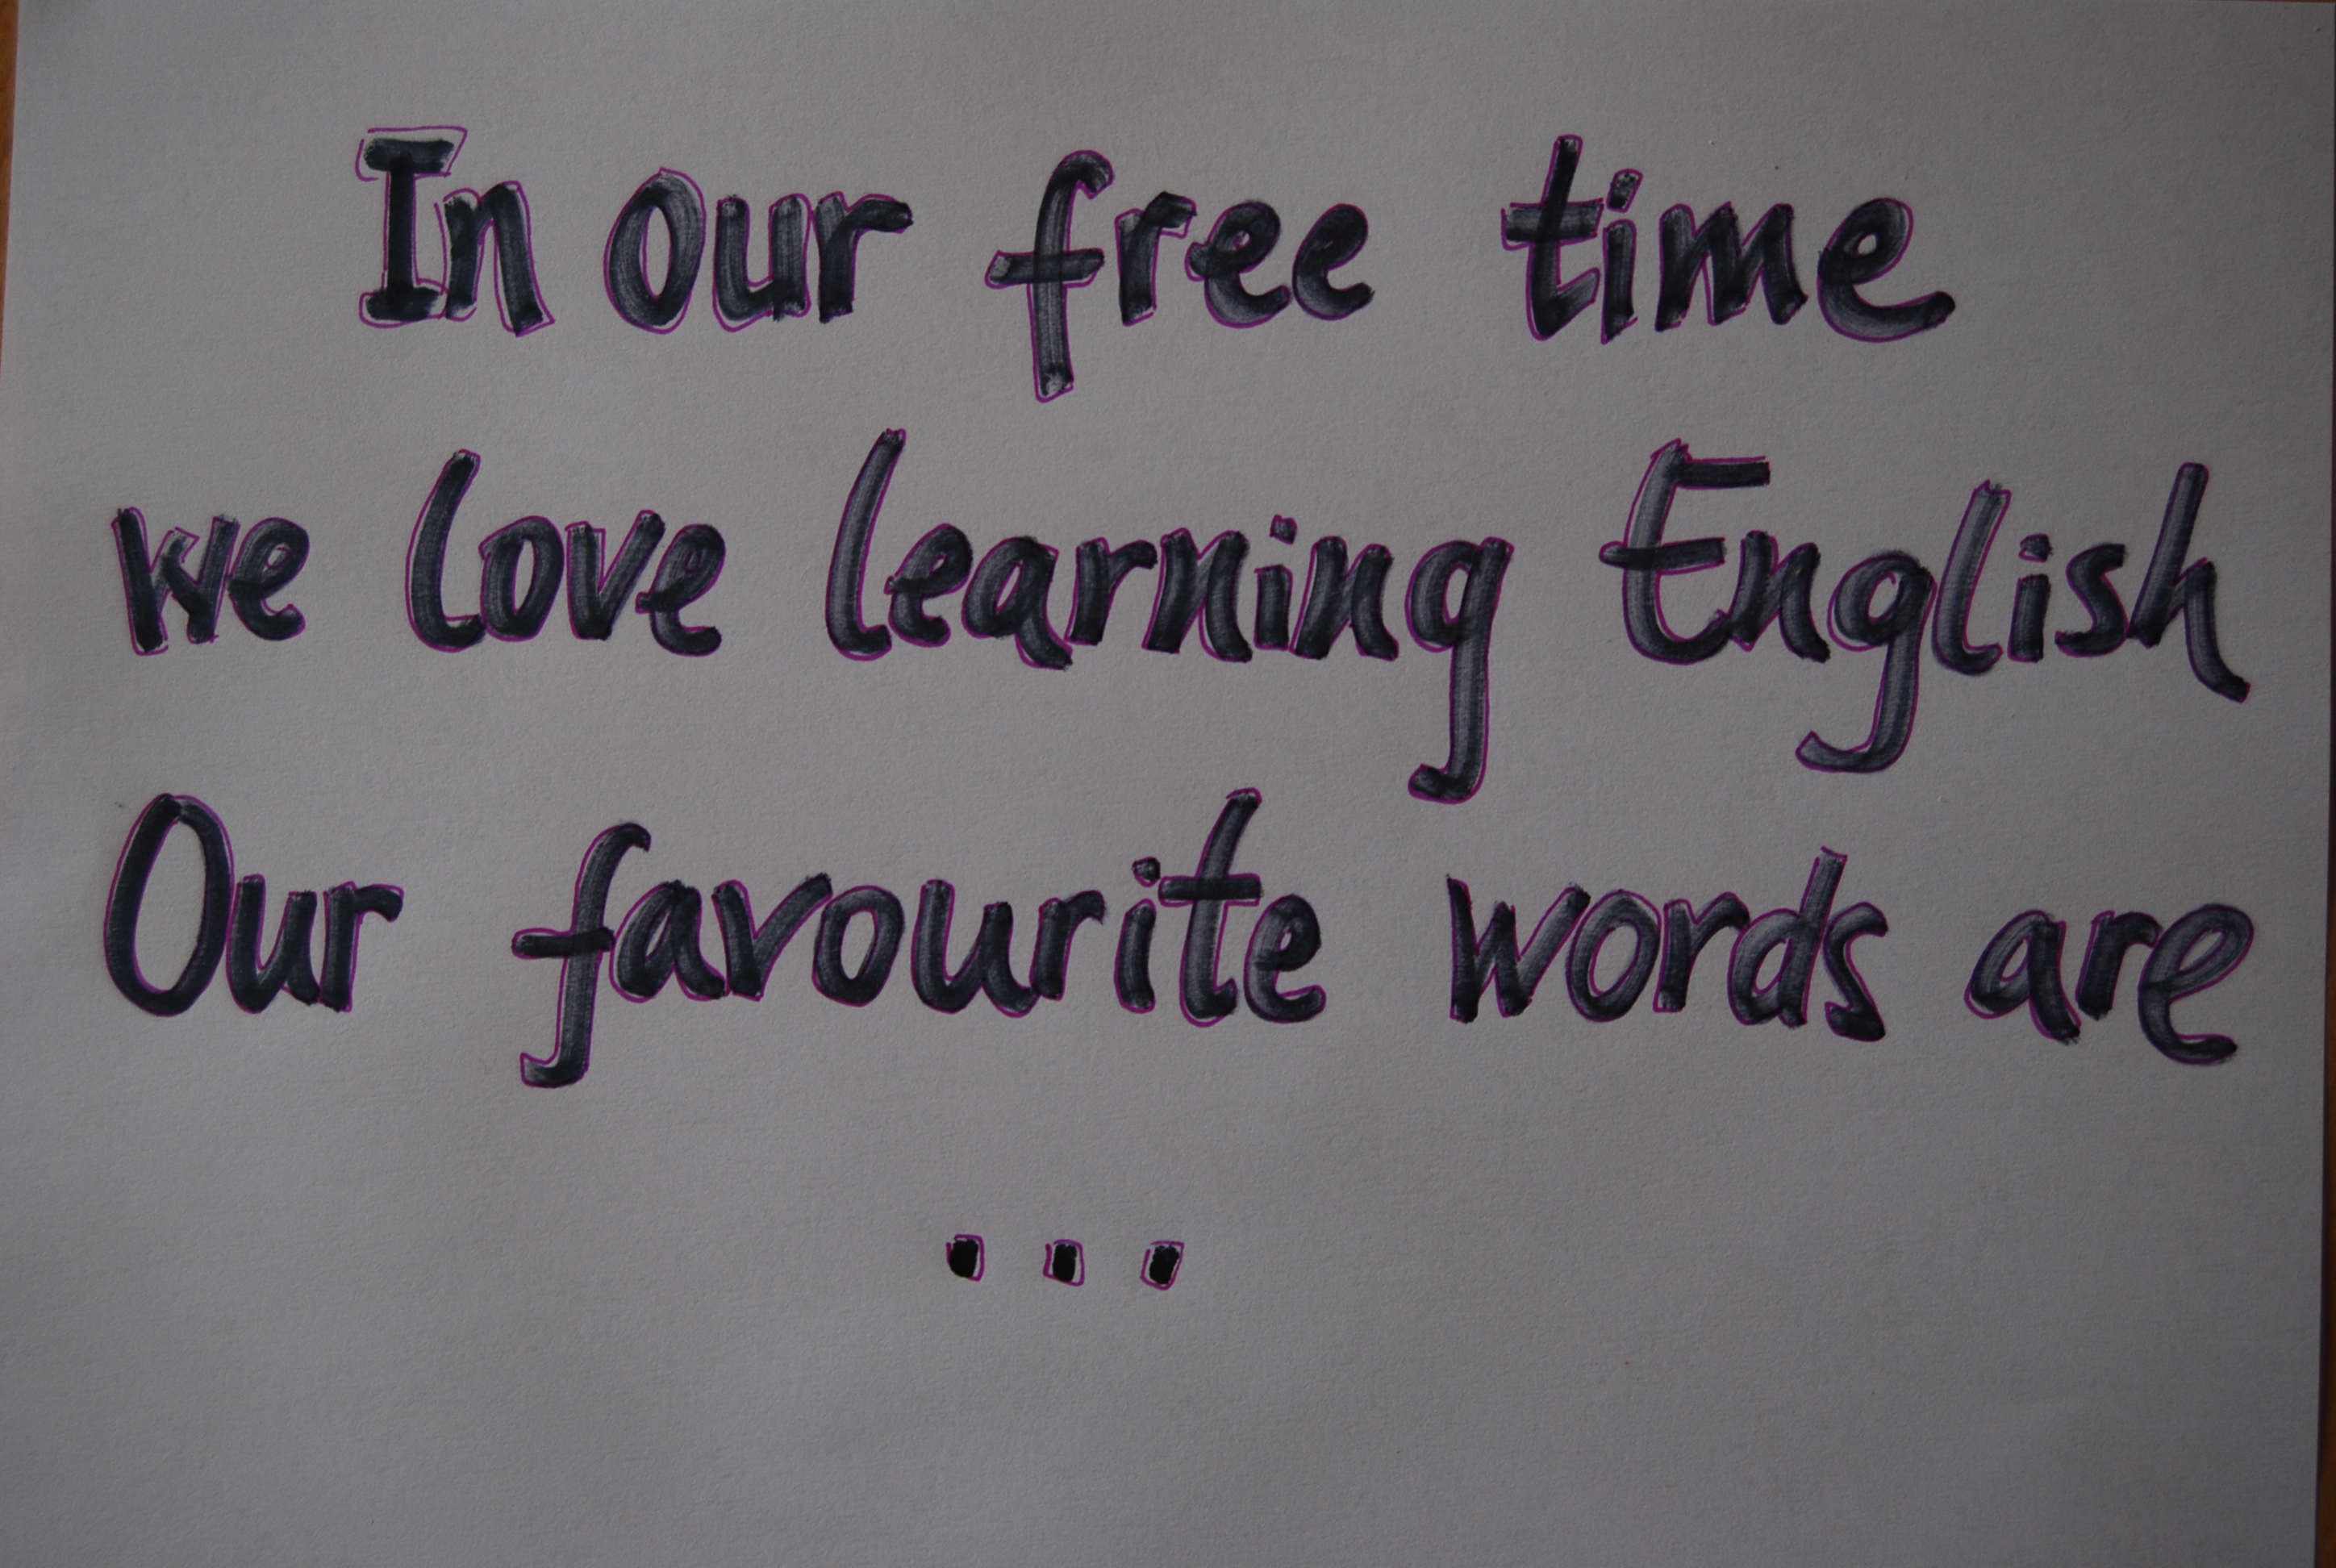 In our free time
we love learning English
Our favourite words are
...